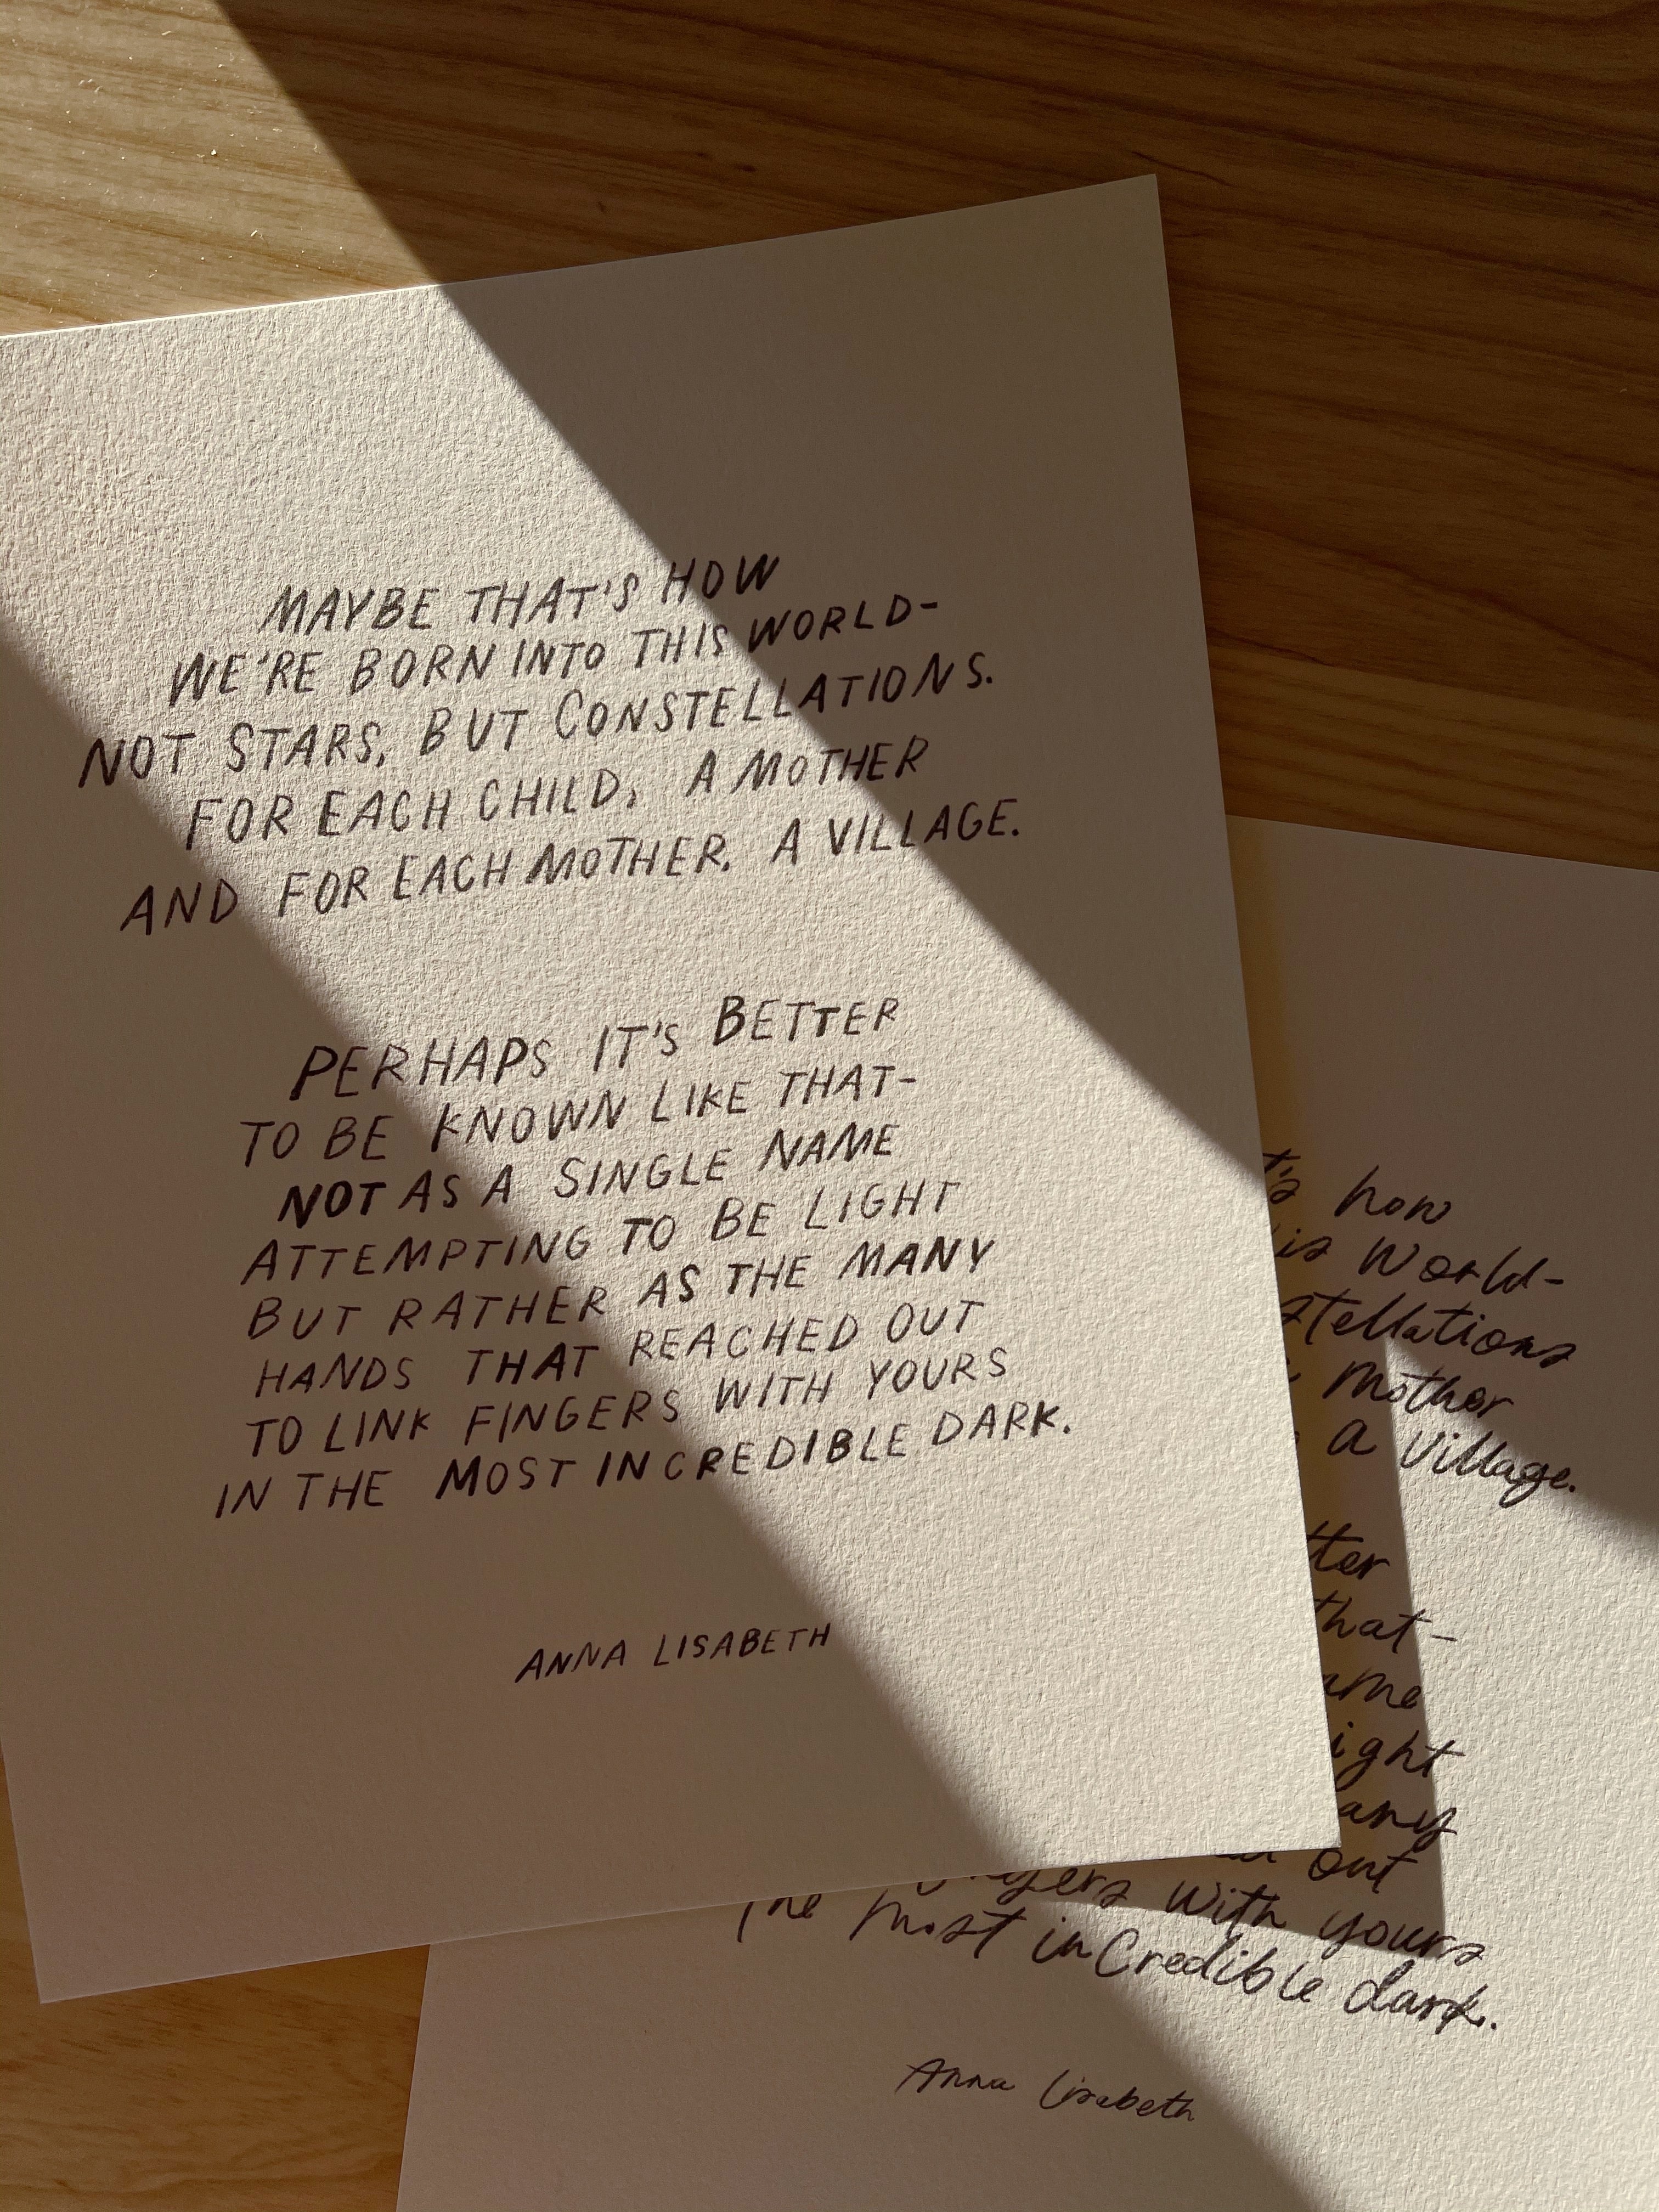 MAYBE THAT'S HOW
WE'RE BORN INTO THIS WORLD-
NOT STARS, BUT CONSTELLATIONS.
FOR EACH CHILD, A MOTHER
AND FOR EACH MOTHER, A VILLAGE.
PERHAPS IT'S BETTER
TO BE KNOWN LIKE THAT-
NOT AS A SINGLE NAME
ATTEMPTING TO BE LIGHT
BUT RATHER AS THE MANY
HANDS THAT REACHED OUT
TO LINK FINGERS WITH YOURS
IN THE MOST INCREDIBLE DARK.
ANNA LISABETH
how
World-
Mother
a Village.
that-
out
with yours
the most inCredible dark.
Anna Lisabeth